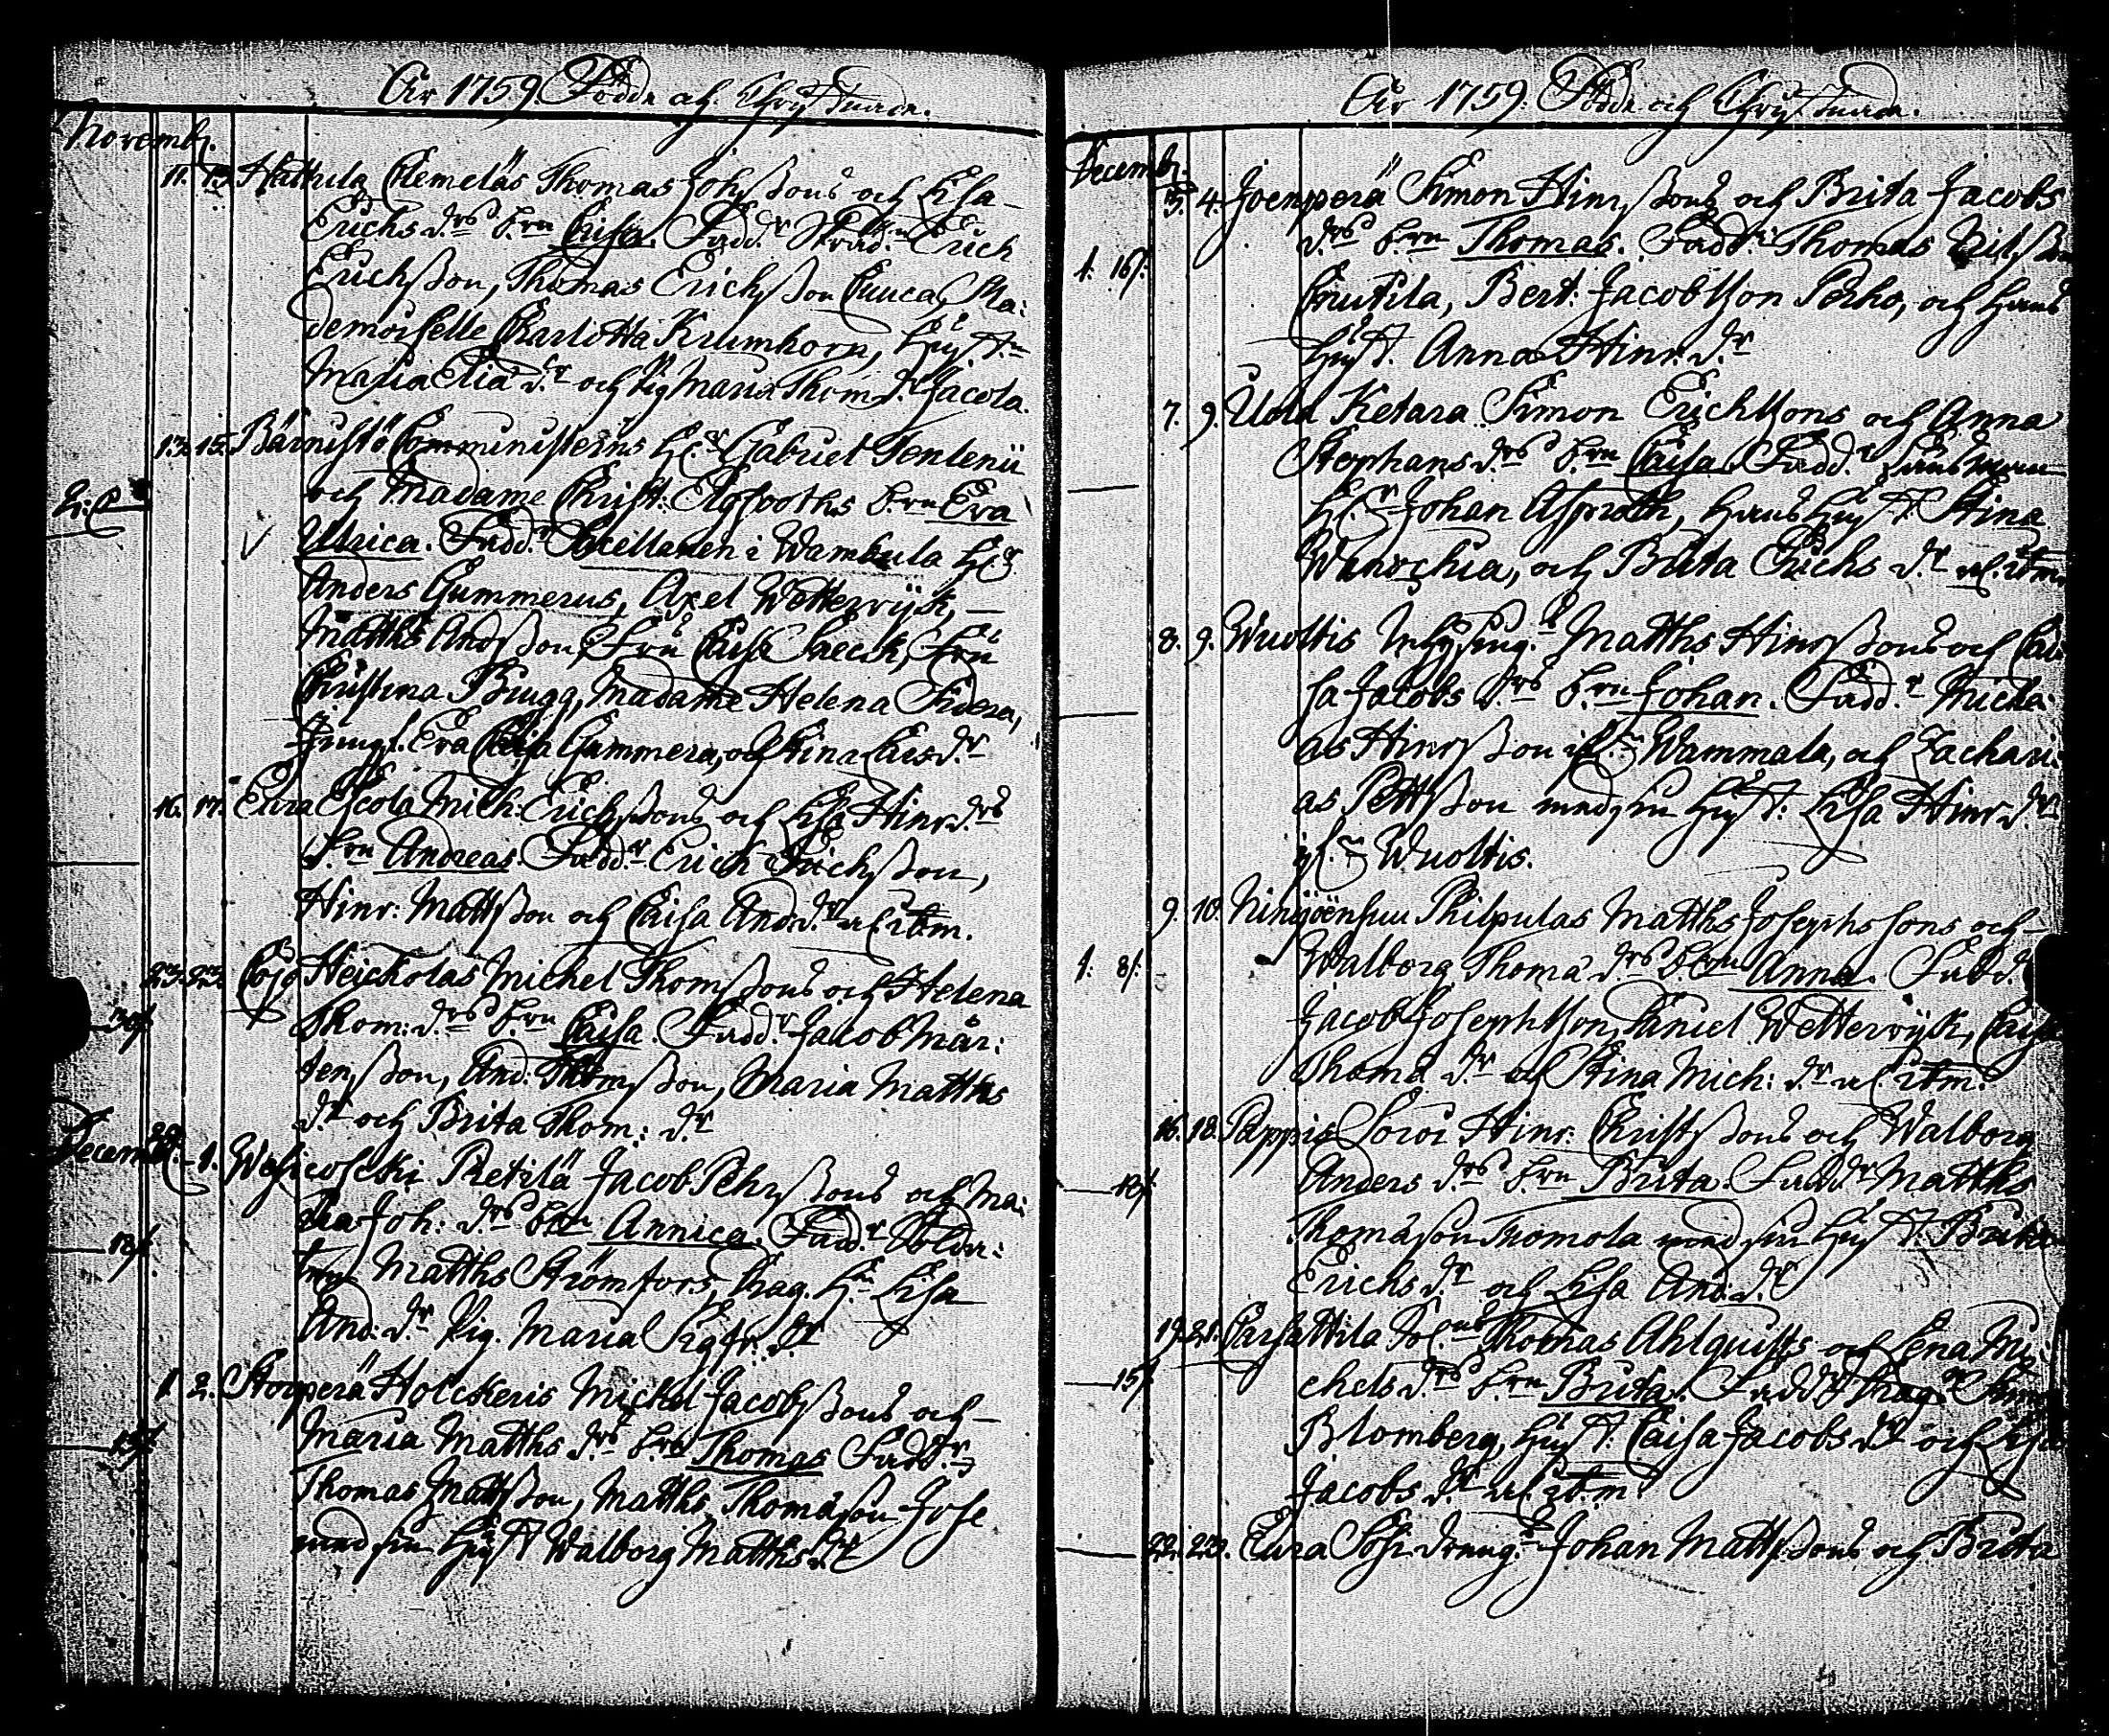 År 1759. Födde och Christnade.
Novembr.
11. 13. Hattula Clemeläs Thomas Johssons och Lisa
Erichs d.rs b.rn Caisa. Fadd.r Skrädd.n Erich
Erichsson, Thomas Erichsson Cuuca, Ma:
demoiselle Charlotta Krumhorn, Hust.n
Maria Elia d.r och Pig. Maria Thom. d.r Jacola.
13. 15. Bärnistö Comministerns H.r Gabriel
och Madame Christ: b.rn Eva
Ulrica. Fadd.r Capellanen i Wambula H.r
Anders Gummerus, Axel Wetterwijk,
Matths Andsson, Fru Caisa, Fru
Christina Brugg, Madame Helena
Jungf. Eva Caisa Gummera, och Stina d.r
16. 17. Eura Escola Mich: Erichssons och Lisa Hinr. d.rs
b.rn Andreas. Fadd.r Erich Erichsson,
Hinr: Mattsson och Caisa And. d.r ibm.
23. 23. Cojo Heickolas Michel Thomssons och Helena
Thom: d.rs b.rn Caisa. Fadd.r Jacob Mår:
tensson, And: Thomsson, Maria Matths
d.r och Brita Thom: d.r
Decembr. 1. Wesicoscki Pietilä Jacob Pehrssons och Ma:
ria Joh: d.rs b.rn Annica. Fadd.r
Matths Strömfors, Drag. H.n Lisa
And: d.r Pig. Maria Sigfr: d.r
1. 2. Storperä Holckeris Michel Jacobssons och
Maria Matths d.rs b.rn Thomas Fadd.r
Thomas Mattsson, Matths Thomasson
med sin Hust. Walborg Matths d.r
År 1759. Födde och Christnade.
Decembr.
3. 4. Joenperä Simon Hinrssons och Brita Jacobs
d.rs b.rn Thomas. Fadd.r Thomas Nilsson
1. 16/.
Bert: Jacobsson Perho, och hans
Hust. Anna Hinr. d.r
7. 9. Uotila Ketara Simon Erichssons och Anna
Stephans d.rs b.rn Caisa. Fadd.r Länsman
H.r Johan Asproth, hans Hust. Stina
Wanochia, och Brita Erichs d.r ibm.
8. 9. Wuoltis Inhysing.s Matths Hinrssons och Cai
sa Jacobs d.rs b.rn Johan. Fadd.r Michel
as Hinrsson if.r Wammala, och Zachari:
as Pettsson med sin Hust: Lisa Hinr. d.r
if.r Wuoltis.
9. 10. Ninijoensuu Philpulas Matths Josephssons och
1. 8/. Walborg Thomæ d.rs b.rn Anna. Fadd.r
Jacob Josephsson, Daniel Wetterwijk, Caisa
Thomæ d.r och Stina Mich: d.r ibm.
16. 18. Pappis Soroi Hinr: Christssons och Walborg
Anders d.rs b.rn Brita. Fadd.r Matths
Thomasson Tuomola med sin Hust. Brita
Erichs d.r och Lisa And. d.r
19. 21. Carhattila Thomas Ahlquists och Lena Mi:
15/. chels d.rs b.rn Brita. Fadd.r Drag.n
Blomberg, Hust: Caisa Jacobs d.r och Lisa
Jacobs d.r ibm.
22. 23. Eura Sohi Dräng.s Johan Mattssons och Brita